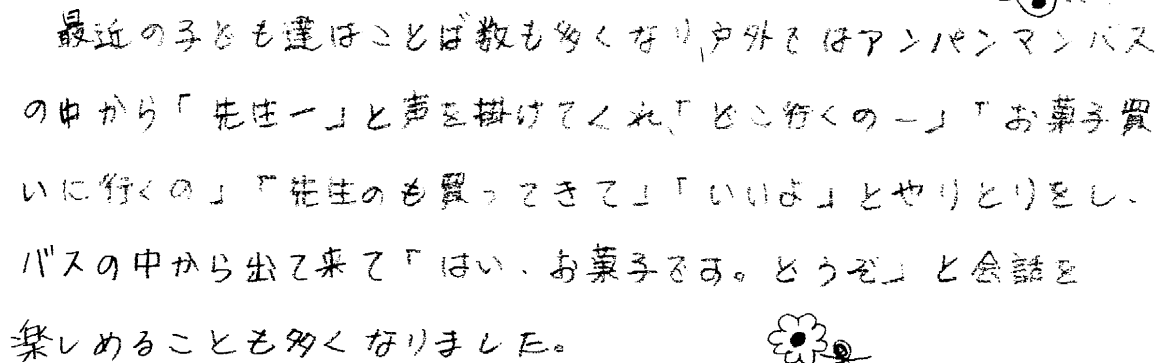 最近の子ども達はことば数も多くなり、戸外ではアンパンマンバス
の中から「先生ー」と声を掛けてくれ、「どこ行くのー」「お菓子買
いに行くの」「先生のも買ってきて」「いいよ」とやりとりをし、
バスの中から出て来て「はい、お菓子です。どうぞ」と会話を
楽しめることも多くなりました。